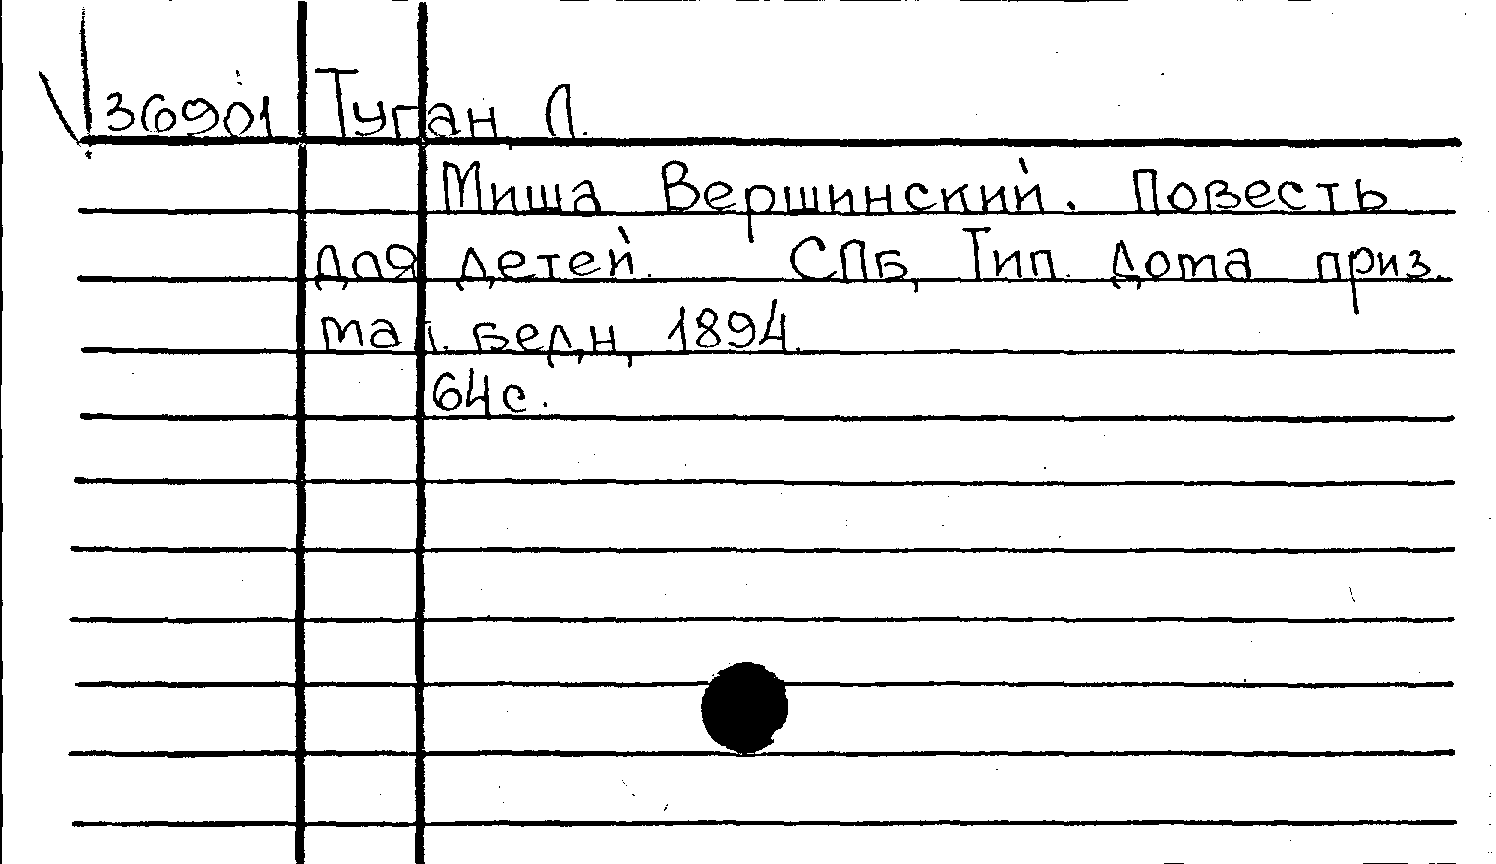 36901 Туган, Л.
Миша Вершинский. Повесть
для детей. СПБ, Тип. Дома приз.
мал. бедн, 1894.
64с.